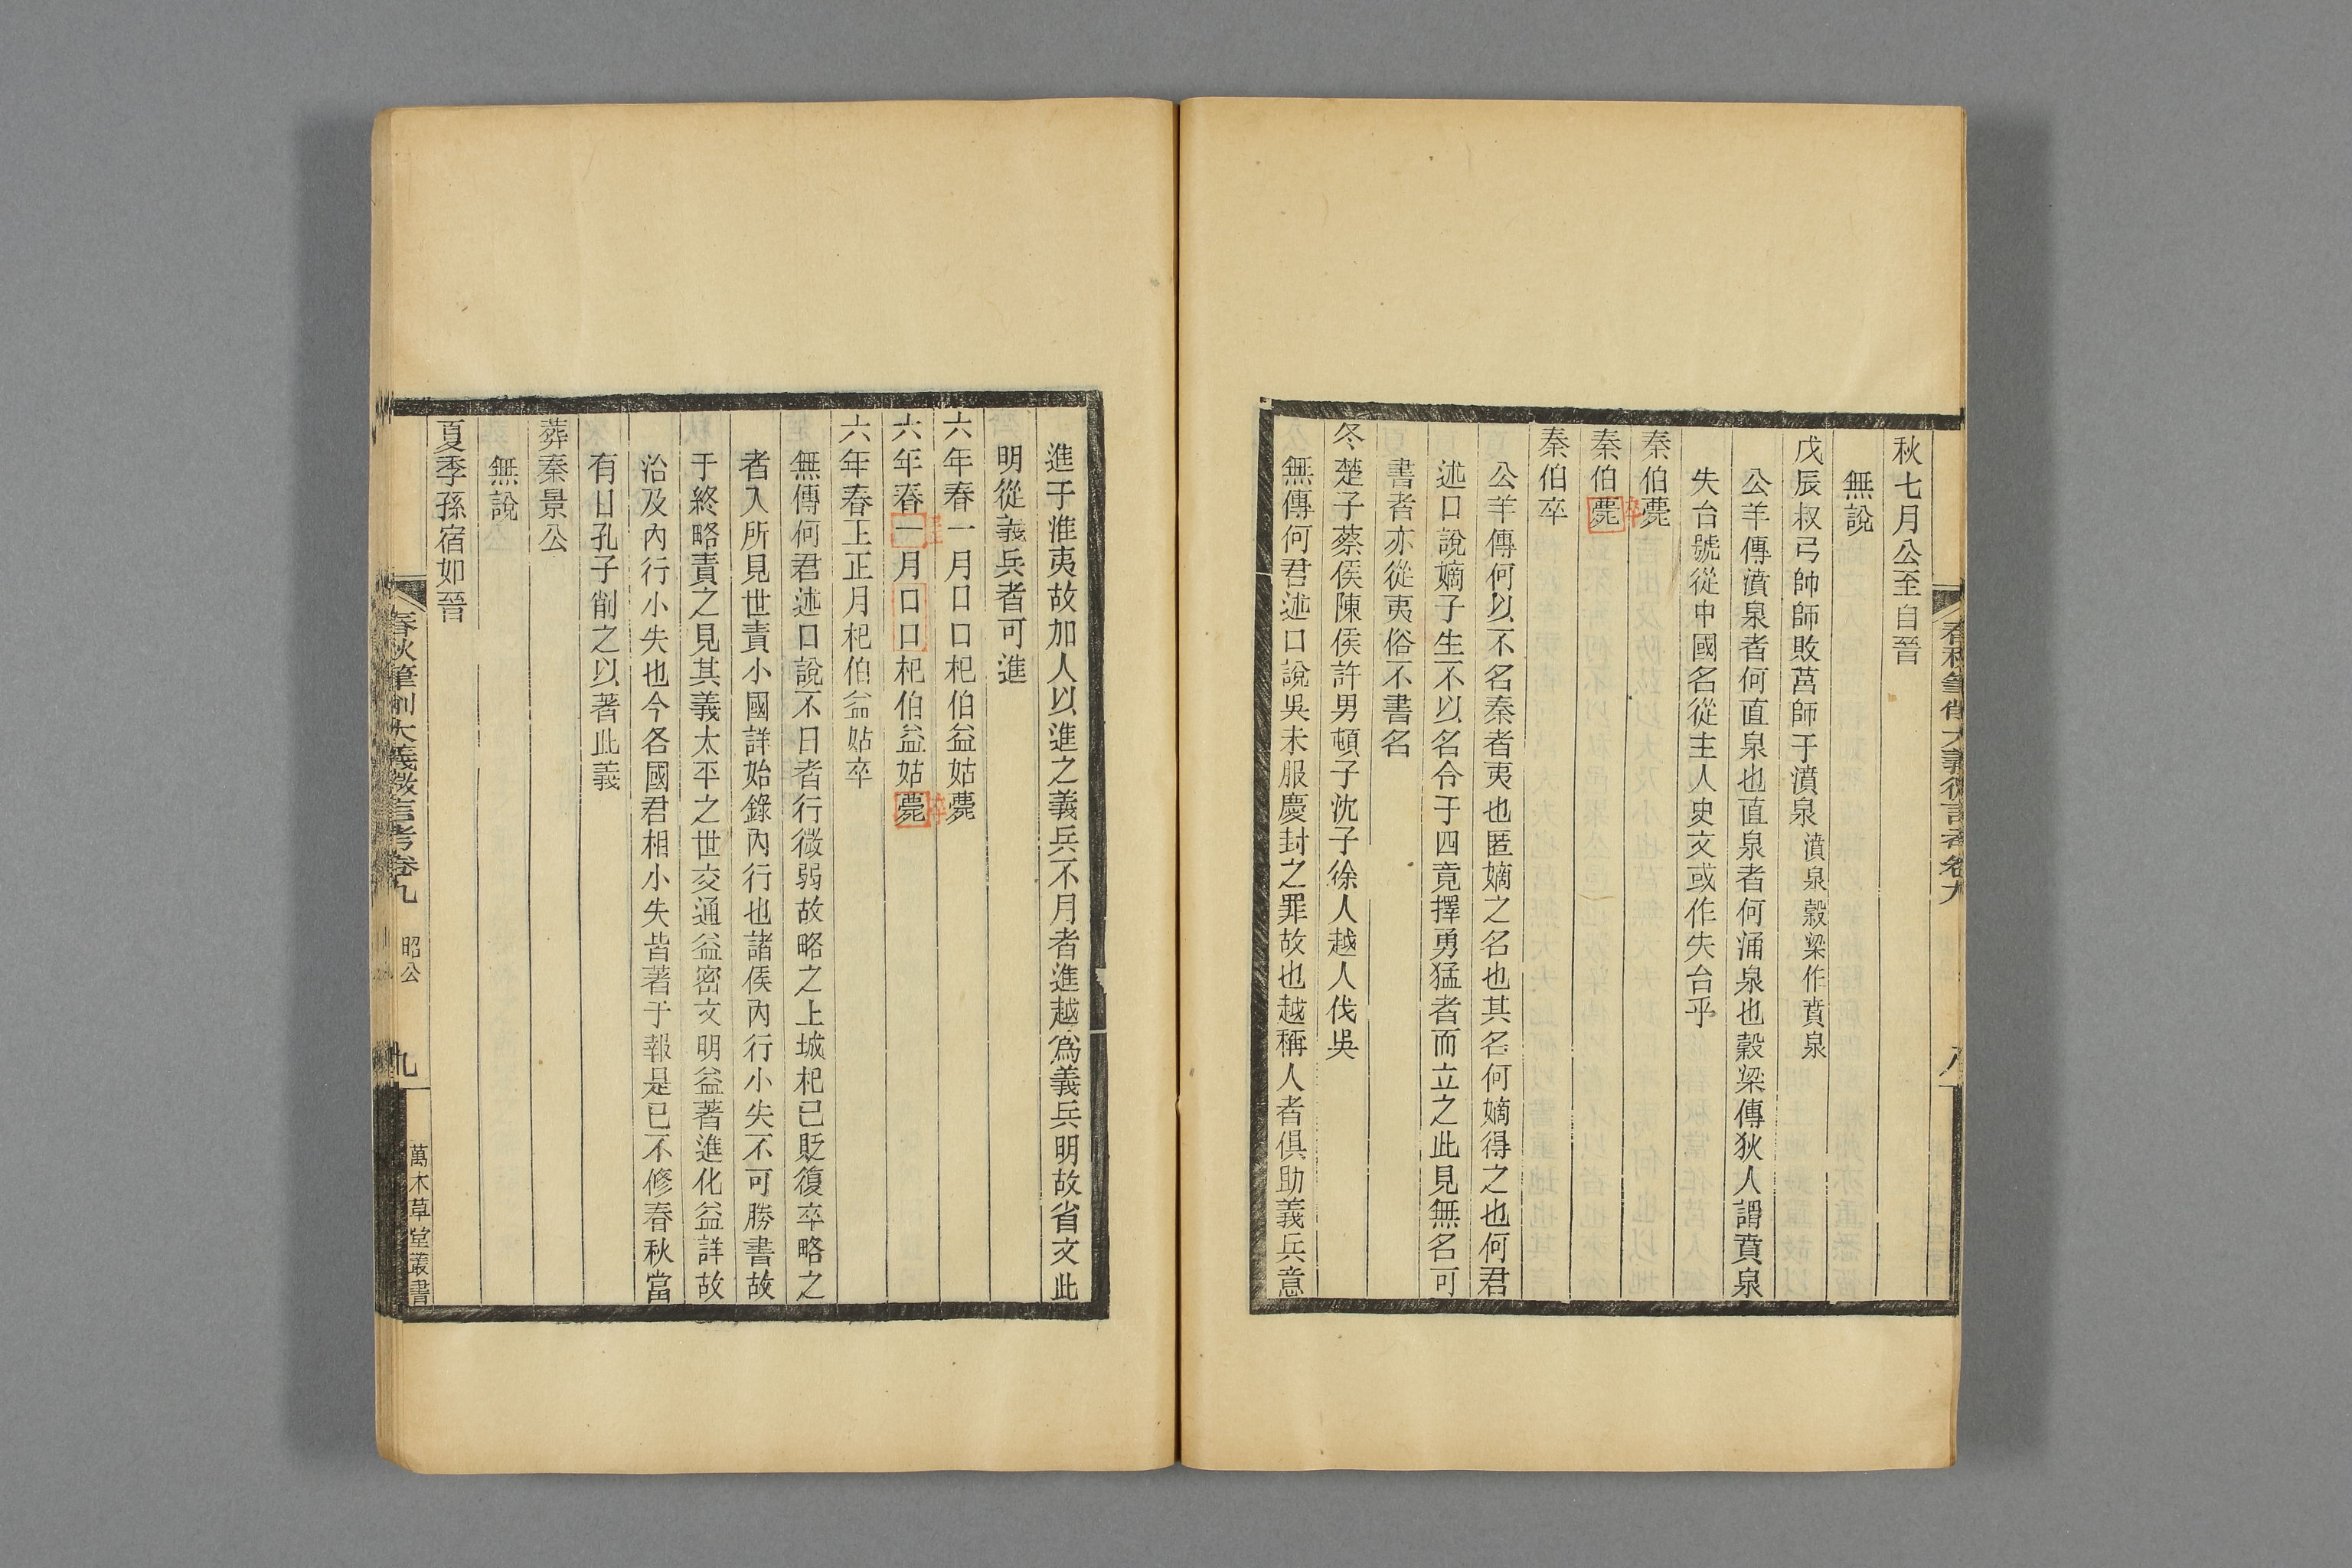 秋七月公至自晉
無說
戊辰叔弓帥師敗莒師于濆泉濆泉穀梁作賁泉
公羊傳濆泉者何直泉也直泉者何涌泉也穀梁傳狄人謂賁泉
失台號從中國名從主人史文或作失台乎
秦伯薨
卒
秦伯薨
秦伯卒
公羊傳何以不名秦者夷也匿嫡之名也其名何嫡得之也何君
述口說嫡子生不以名令于四竟擇勇猛者而立之此見無名可
書者亦從夷俗不書名
冬楚子蔡侯陳侯許男頓子沈子徐人越人伐吳
無傳何君述口說吳未服慶封之罪故也越稱人者俱助義兵意
春秋筆削大義微言考卷九
八
進于淮夷故加人以進之義兵不月者進越為義兵明故省文此
明從義兵者可進
六年春一月口口杞伯益姑薨
王正
卒
六年春一月口口杞伯益姑薨
六年春王正月杞伯益姑卒
無傳何君述口說不日者行微弱故略之上城杞已貶復卒略之
者入所見世責小國詳始錄內行也諸侯內行小失不可勝書故
于終略責之見其義太平之世交通益密文明益著進化益詳故
治及內行小失也今各國君相小失皆著于報是已不修春秋當
有日孔子削之以著此義
葬秦景公
無說
夏季孫宿如晉
春秋筆削大義微言考卷九
昭公
九
萬木草堂叢書